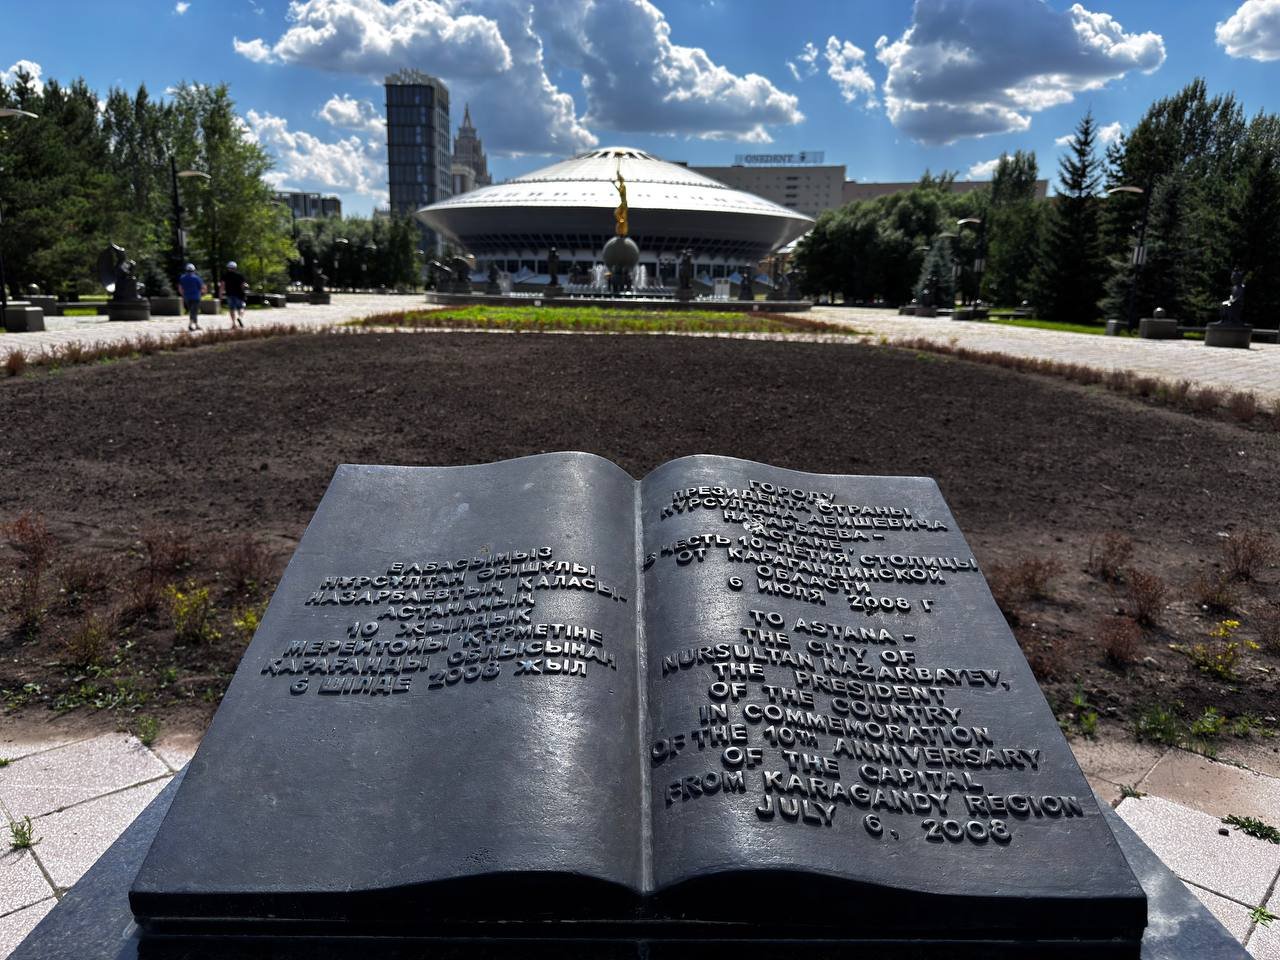 ONEDENT
ЕЛБАСЫМЫЗ
НҰРСҰЛТАН ӘБІШҰЛЫ
НАЗАРБАЕВТЫҢ ҚАЛАСЫ-
АСТАНАНЫҢ
10 ЖЫЛДЫҚ
МЕРЕЙТОЙЫ ҚҰРМЕТІНЕ
ҚАРАҒАНДЫ ОБЛЫСЫНАН
6 ШІЛДЕ 2008 ЖЫЛ
ГОРОДУ
ПРЕЗИДЕНТА СТРАНЫ
НУРСУЛТАНА АБИШЕВИЧА
НАЗАРБАЕВА -
АСТАНЕ,
В ЧЕСТЬ 10-ЛЕТИЯ СТОЛИЦЫ
ОТ КАРАГАНДИНСКОЙ
ОБЛАСТИ
6 ИЮЛЯ 2008 Г
TO ASTANA -
THE CITY OF
NURSULTAN NAZARBAYEV,
THE PRESIDENT
OF THE COUNTRY
IN COMMEMORATION
OF THE 10TH ANNIVERSARY
OF THE CAPITAL
FROM KARAGANDY REGION
JULY 6, 2008